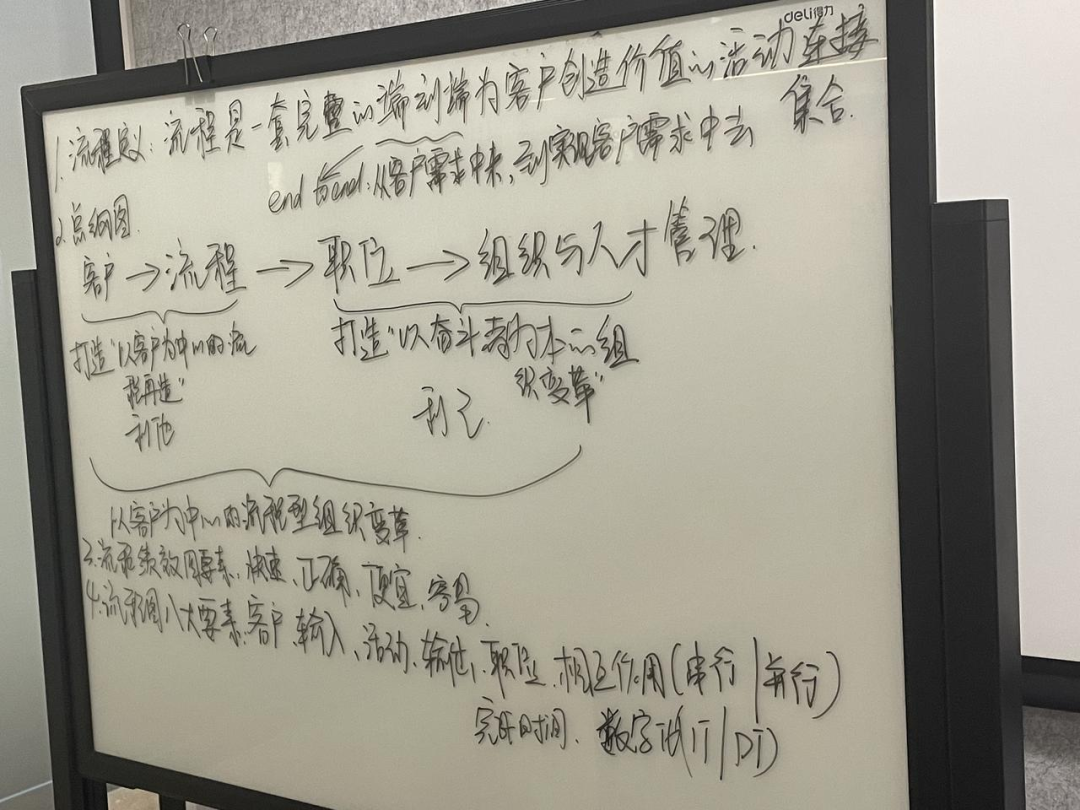 deli得力
1. 流程定义: 流程是一套完整的端到端为客户创造价值的活动连接
集合.
end to end: 从客户需求中来, 到实现客户需求中去
2. 总纲图.
客户 → 流程 → 职位 → 组织与人才管理.
打造"以客户为中心的流
程再造"
利他
打造"以奋斗者为本的组
织变革"
利己
以客户为中心的流程型组织变革.
3. 流程绩效四要素: 快速、正确、便宜、容易.
4. 流程图八大要素: 客户、输入、活动、输出、职位、相互作用(串行/并行)
完成时间、数字化(IT/DT)